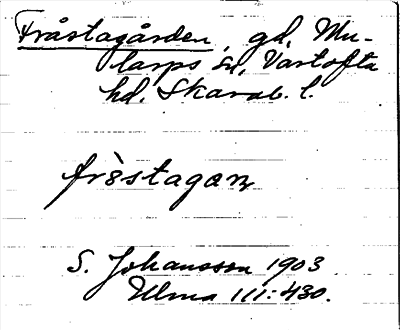 Fråstagården, gd, Mu-
larps sn, Vartofta
hd. Skarab. l.
fròstagaɳ
S. Johansson 1903.
Ulma 111:430.